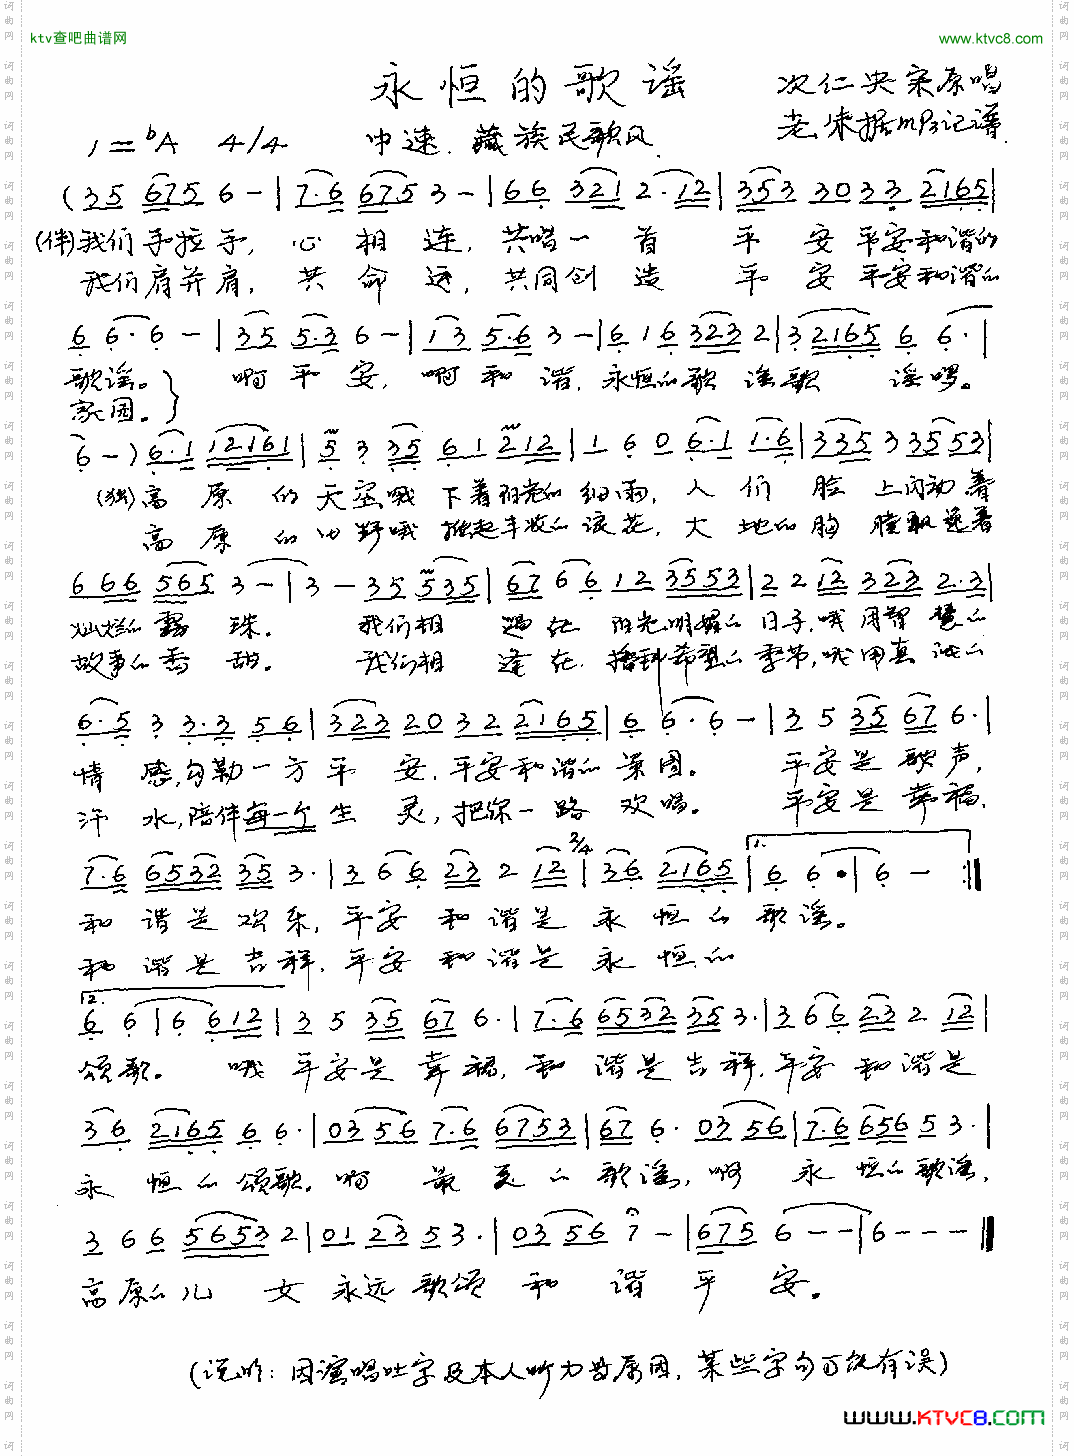 ktv查吧曲谱网 www.ktvc8.com
永恒的歌谣
次仁央宗原唱
1=bA 4/4 中速 藏族民歌风
老朱据mp3记谱
(35 6756-|7·6 6753-|66 3212·12|353 3033 2165|
(伴)我们手拉手,心相连,共唱一首平安平安和谐的
我们肩并肩,共命运,共同创造平安平安和谐的
66·6-|35 5·36-|13 5·63-|616 3232|32165 66·|
歌谣。啊平安,啊和谐,永恒的歌谣歌谣啰。
家园。
6-)6·1 12161|53 35 61 212|160 6·1 1·6|335 33553|
(独)高原的天空哦下着阳光的细雨,人们脸上闪动着
高原的田野哦掀起丰收的浪花,大地的胸膛飘逸着
666 5653-|3-35 535|676612 3553|22 12 323 2·3|
灿烂的露珠。我们相遇在阳光明媚的日子,哦用智慧的
故事的香甜。我们相逢在播种希望的季节,哦用真诚的
6·53 3·356|323 20 32 2165|66·6-|35 35 67 6·|
情感,勾勒一方平安,平安和谐的家园。平安是歌声,
汗水,陪伴每一个生灵,把你一路欢唱。平安是幸福,
7·6 6532 35 3·|366 23 2 12|2/4 36 2165|1. 66·|6-:|
和谐是欢乐,平安和谐是永恒的歌谣。
和谐是吉祥,平安和谐是永恒的
2. 66|6 612|35 35 67 6·|7·6 6532 353·|366 232 12|
颂歌。哦平安是幸福,和谐是吉祥,平安和谐是
36 2165 66·|03 56 7·6 6753|67 6· 03 56|7·6 656 53·|
永恒的颂歌。啊最美的歌谣,啊永恒的歌谣,
366 56532|01 23 53·|03 56 7-|675 6--|6---||
高原的儿女永远歌颂和谐平安。
(说明:因演唱吐字及本人听力等原因,某些字句可能有误)
www.KTVC8.com